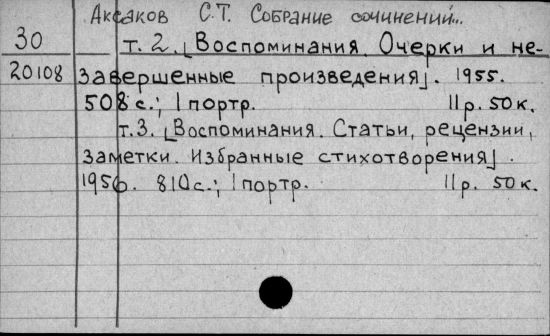 Аксаков С.Т. Собрание сочинений...
30 т. 2. [Воспоминания. Очерки и не-
20108 завершенные произведения]. 1955.
508 с.; 1 портр. 11р. 50к.
т.3. [Воспоминания. Статьи, рецензии,
заметки. Избранные стихотворения].
1956. 810с.; 1 портр. 11р. 50к.